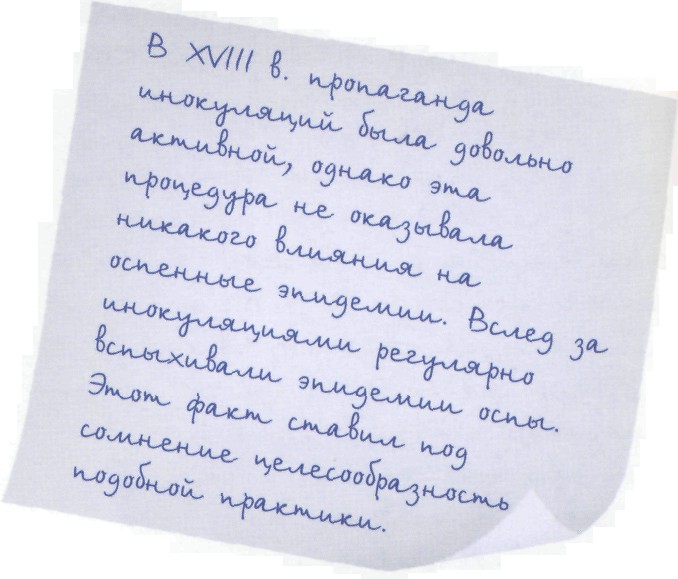 В XVIII в. пропаганда
инокуляций была довольно
активной, однако эта
процедура не оказывала
никакого влияния на
оспенные эпидемии. Вслед за
инокуляциями регулярно
вспыхивали эпидемии оспы.
Этот факт ставил под
сомнение целесообразность
подобной практики.